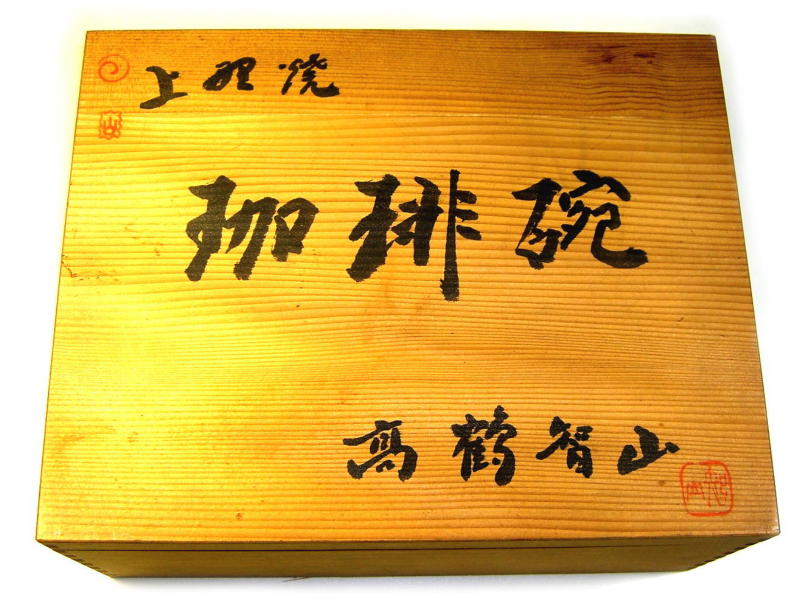 上野焼
珈琲碗
高鶴智山